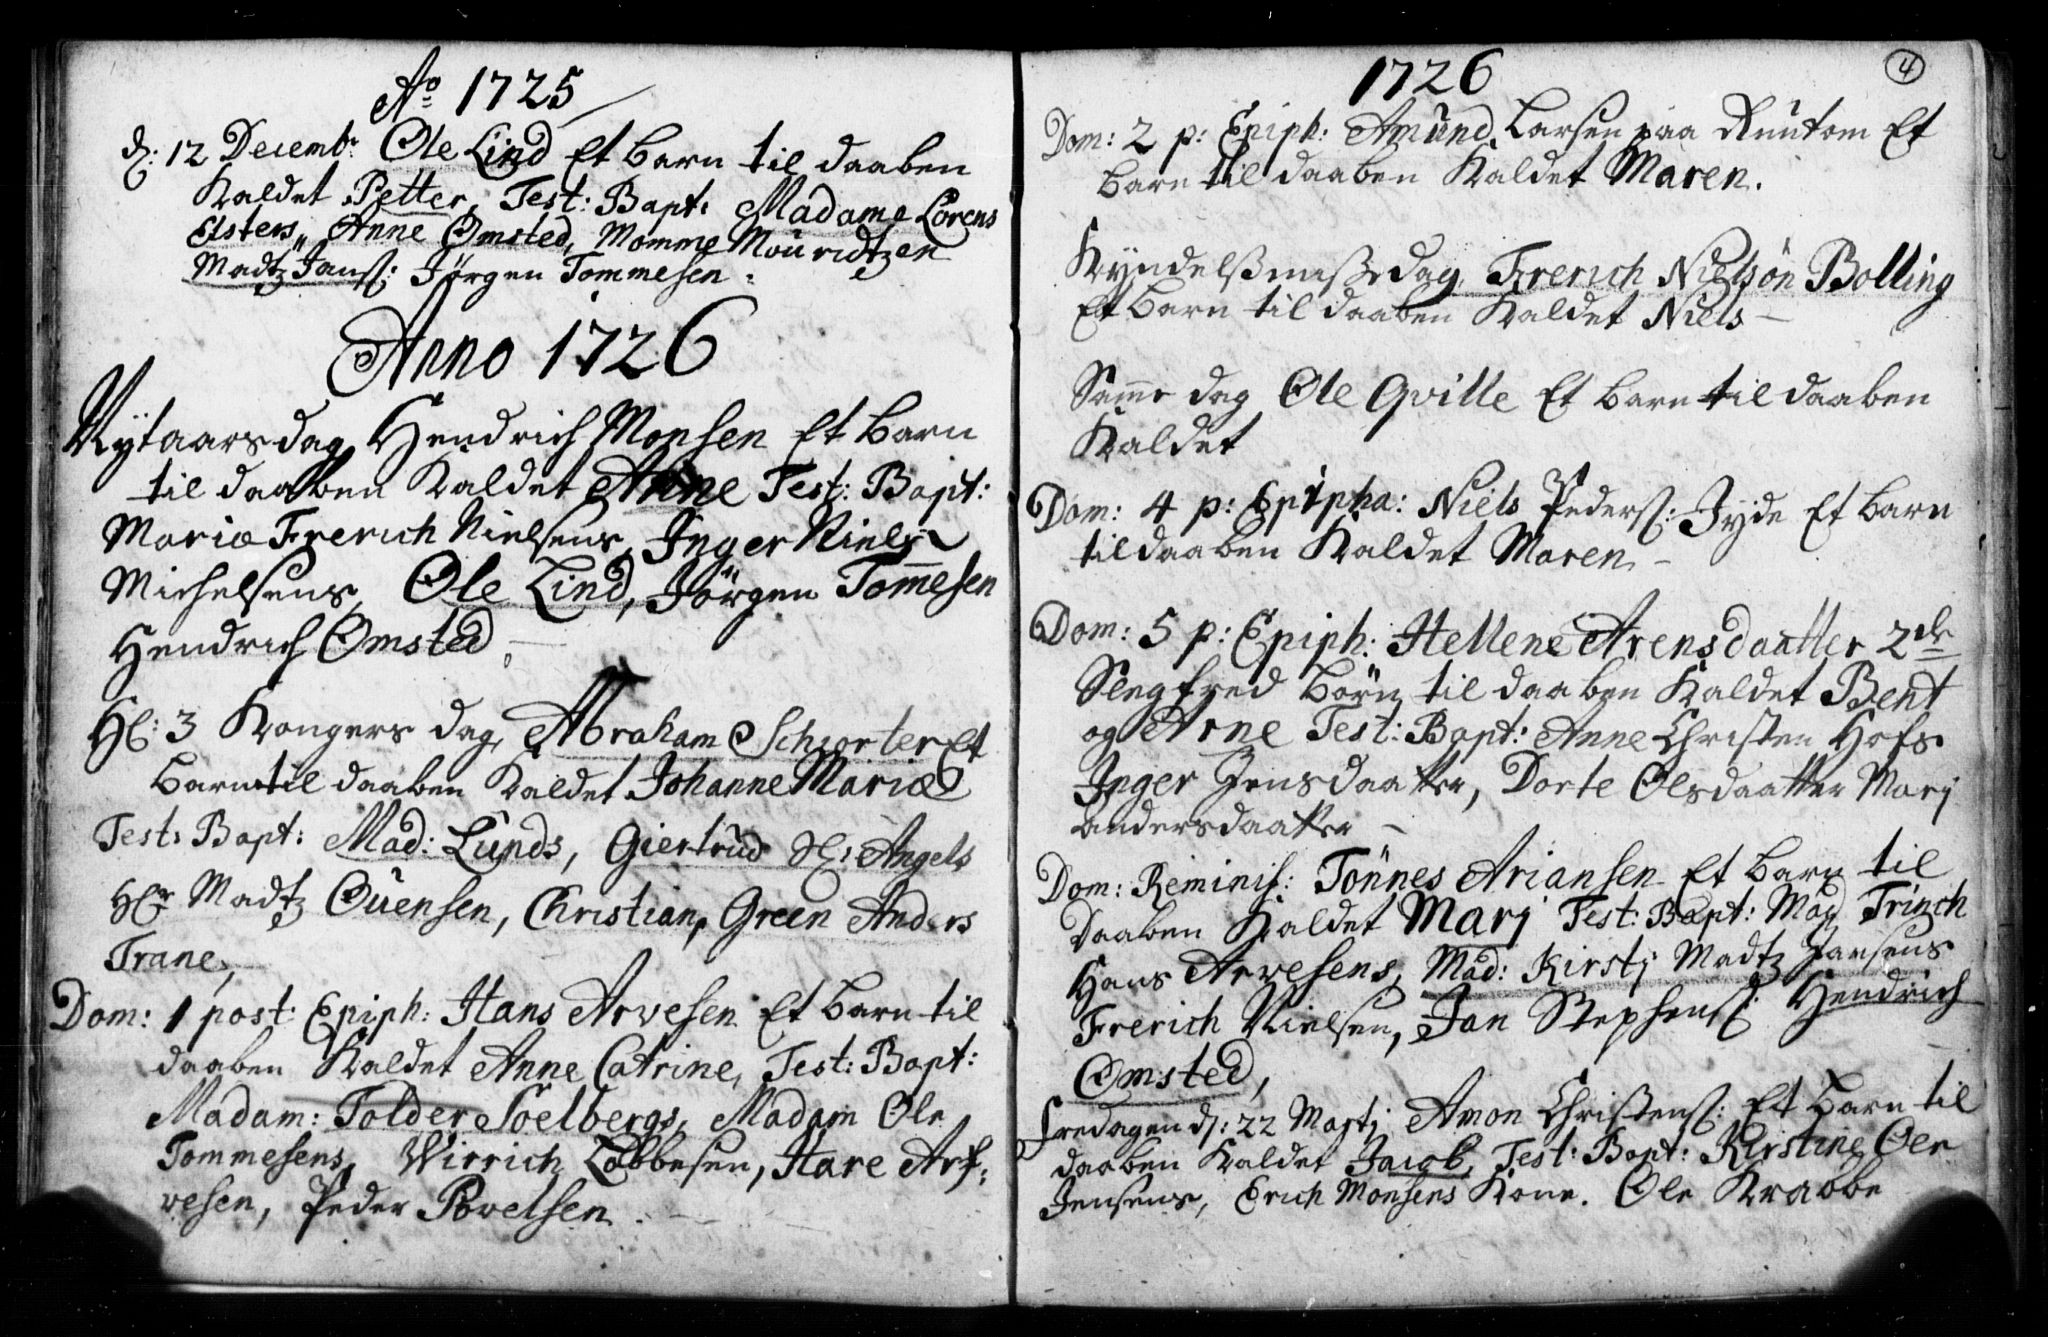 Ao 1725
d: 12 Decembr: Ole Lind Et barn til daaben
Kaldet Petter, Test: Bapt: Madame Lorens
Elsters, Anne Omsted, Momme Mouridtzen
Madtz Jans: Jørgen Tommesen
Anno 1726
Nÿtaarsdag Hendrich Monsen Et barn
til daaben Kaldet Anne Test: Bapt:
Mariæ Frerich Nielsens, Inger Niels
Michelsens, Ole Lind, Jörgen Tom̄esen
Hendrich Omsted
Hl: 3 Kongers dag, Abraham Schiorter Et
barn til daaben Kaldet Johanne Mariæ
Test: Bapt: Mad: Lunds, Giertrud Sl: Angels
Hr Madtz Ouensen, Christian, Green Anders
Trane,
Dom: 1 post: Epiph: Hans Arvesen Et barn til
daaben Kaldet Anne Catrine, Test: Bapt:
Madam: Tolder Soelbergs, Madam Ole
Tommesens, Wirrich Lobbesen, Hare Arf:
vesen, Peder Povelsen
1726
4
Dom: 2 p: Epiph: Amund Larsen paa Ruutom Et
barn til daaben Kaldet Maren.
Kyndelsmisse dag Frerich Nielsön Bolling
Et barn til daaben Kaldet Niels
Samme dag Ole Qville Et barn til daaben
Kaldet
Dom: 4 p: Epipha: Niels Peders: Jyde Et barn
til daaben Kaldet Maren
Dom: 5 p: Epiph: Hellene Arensdaatter 2de
Slegfred börn til daaben Kaldet Bent
og Arne Test: Bapt: Anne Christen Hofs
Inger Jensdaatter, Dorte Olsdaatter Marj
Andersdaatter
Dom: Reminis: Tönnes Ariansen Et barn til
Daaben Kaldet Marj Test: Bapt: Mad Trinch
Hans Arvesens, Mad: Kirstj Madtz Jansens
Frerich Nielsen, Jan Stephens: Hendrich
Omsted,
Fredagen d: 22 Martj Amon Christens: Et barn til
daaben Kaldet Jacob, Test: Bapt: Kirstine Ole
Jensens, Erich Monsens Kone. Ole Krabbe